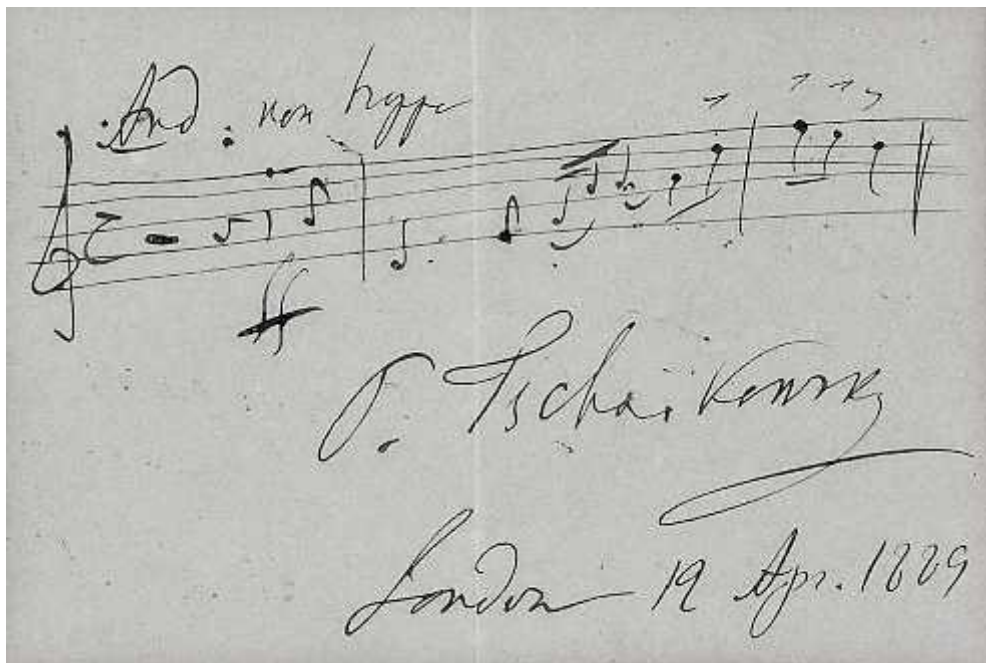 And. non troppo
ff
P. Tschaïkowsky
London 19 Apr. 1889